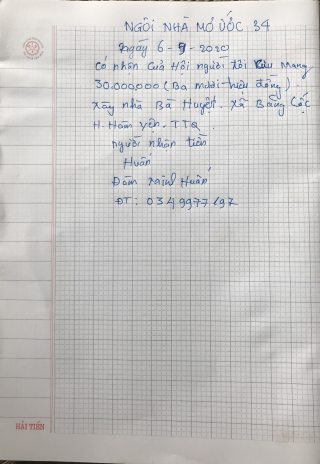 NGÔI NHÀ MƠ ƯỚC 34
Ngày 6-9-2020
Có nhận Của Hội người tôi Cưu Mang
30.000.000 (Ba mươi triệu đồng)
Xây nhà Bà Huyết. Xã Bằng Cốc
H. Hàm yên. TTQ.
người nhận tiền
Huấn
Đàm Huấn
ĐT: 0349977197
HẢI TIẾN